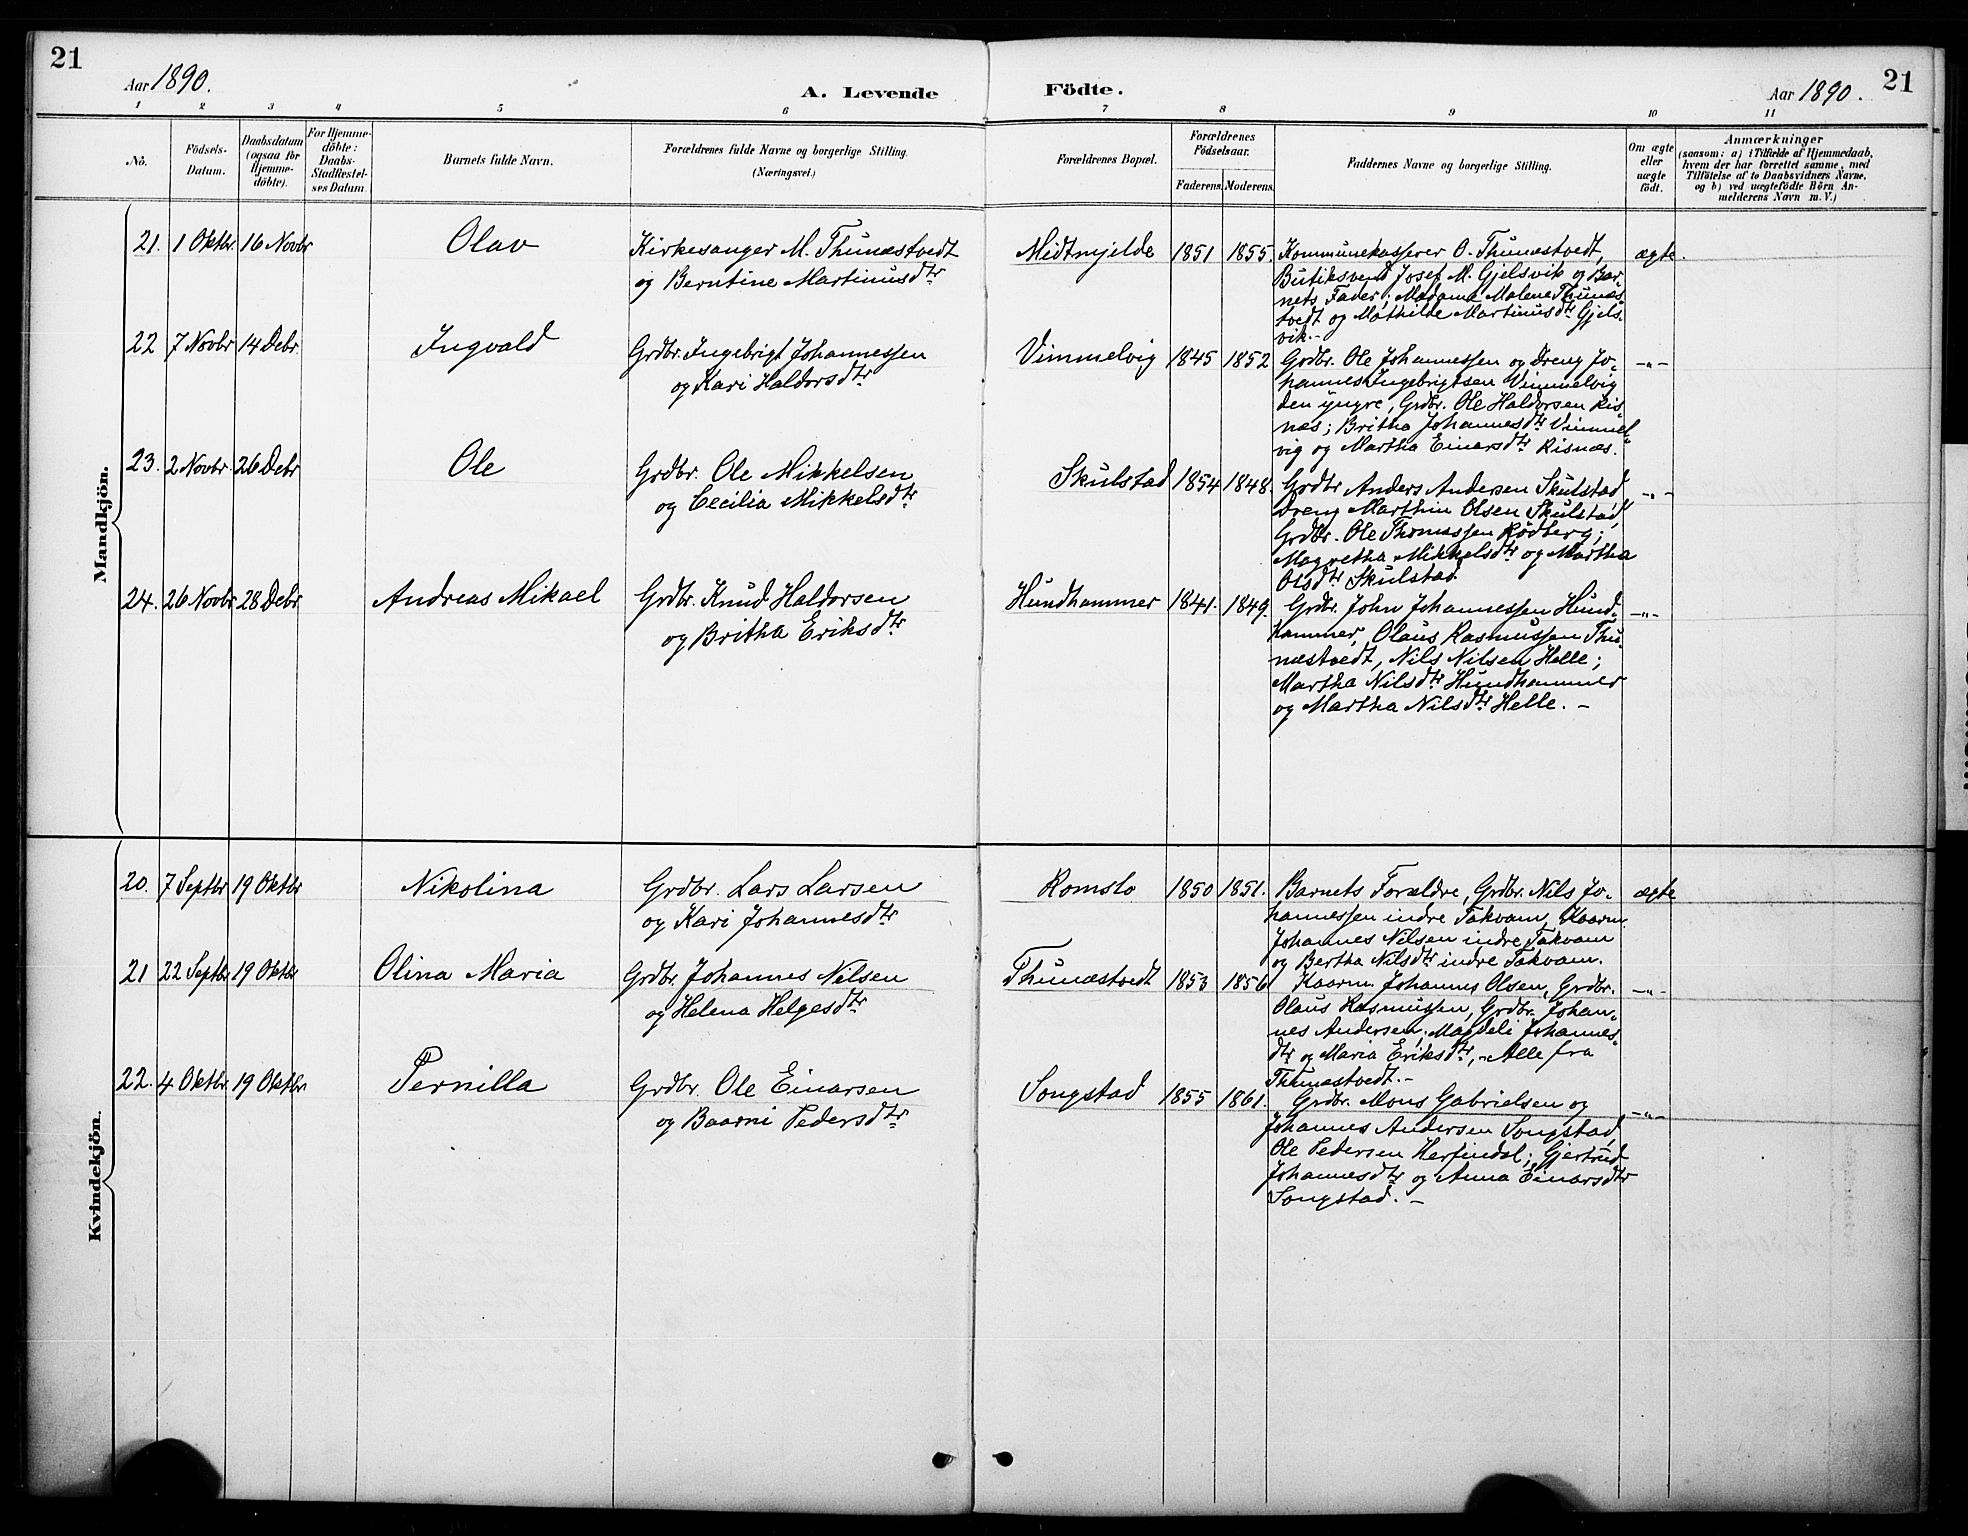 21
Aar 1890.
A. Levende
Födte.
Aar 1890.
21
1 2 3 4 5 6 7 8 9 10 11
No.
Födsels-
Datum.
Daabsdatum
(ogsaa for
Hjemme-
döbte).
For Hjemme-
döbte:
Daabs-
Stadfæstel-
ses Datum.
Barnets fulde Navn.
Forældrenes fulde Navne og borgerlige Stilling.
(Næringsvei.)
Forældrenes Bopæl.
Forældrenes
Födselsaar.
Faderens. Moderens.
Faddernes Navne og borgerlige Stilling.
Om ægte
eller
uægte
födt.
Anmærkninger
(saasom: a) i Tilfælde af Hjemmedaab,
hvem der har forrettet samme, med
Tilföielse af to Daabsvidners Navne,
og b) ved uægtefödte Börn An-
melderens Navn m.V.)
Mandkjön.
21. 1 Oktbr. 16 Novbr Olav
Kirkesanger M. Thunæstvedt
og Berntine Martinusdtr
Midtmjelde 1851 1855.
Kommunekasserer O. Thunæstvedt,
Butiksvend Josef M. Gjelsvik og Bar-
nets Fader; Madame Malene Thunæs-
tvedt og Mathilde Martinusdtr Gjels-
vik.-
ægte.
22 7 Novbr 14 Debr. Ingvald
Grdbr. Ingebrigt Johannessen
og Kari Haldorsdtr
Vimmelvig 1845 1852
Grdbr. Ole Johannessen og Dreng Jo-
hannes Ingebrigtsen Vimmelvig
den yngre, Grdbr. Ole Haldorsen Ris-
næs; Britha Johannesdtr Vimmel-
vig og Martha Einarsdtr Risnæs.
-"-
23. 2 Novbr 26 Debr Ole
Grdbr. Ole Mikkelsen
og Cecilia Mikkelsdtr
Skulstad 1854 1848.
Grdbr Anders Andersen Skulstad,
Dreng Marthin Olsen Skulstad,
Grdbr. Ole Thomassen Rödberg;
Magretha Mikkelsdtr og Martha
Olsdtr Skulstad.
-"-
24. 26 Novbr 28 Debr Andreas Mikael
Grdbr. Knud Haldorsen
og Britha Eriksdtr
Hundhammer 1841. 1849.
Grdbr. John Johannessen Hund-
hammer, Olaus Rasmussen Thu-
næstvedt, Nils Nilsen Helle;
Martha Nilsdtr Hundhammer
og Martha Nilsdtr Helle. -
-"-
Kvindekjön.
20. 7 Septbr 19 Oktbr Nikolina
Grdbr. Lars Larsen
og Kari Johannesdtr
Romslo 1850 1851.
Barnets Forældre, Grdbr. Nils Jo-
hannessen indre Takvam, Kaarm.
Johannes Nilsen indre Takvam
og Bertha Nilsdtr indre Takvam.
ægte
21 22 Septbr 19 Oktbr Olina Maria
Grdbr. Johannes Nilsen
og Helena Helgesdtr
Thunæstvedt 1853 1856
Kaarm. Johannes Olsen, Grdbr.
Olaus Rasmussen, Grdbr. Johan-
nes Andersen; Magdeli Johannes-
dtr og Maria Eriksdtr, - Alle fra
Thunæstvedt.-
-"-
22. 4 Oktbr. 19 Oktbr. Pernilla
Grdbr. Ole Einarsen
og Baarni Pedersdtr
Songstad 1855 1861.
Grdbr. Mons Gabrielsen og
Johannes Andersen Songstad,
Ole Pedersen Herfindal; Gjertrud
Johannesdtr og Anna Einarsdtr
Songstad. -
-"-